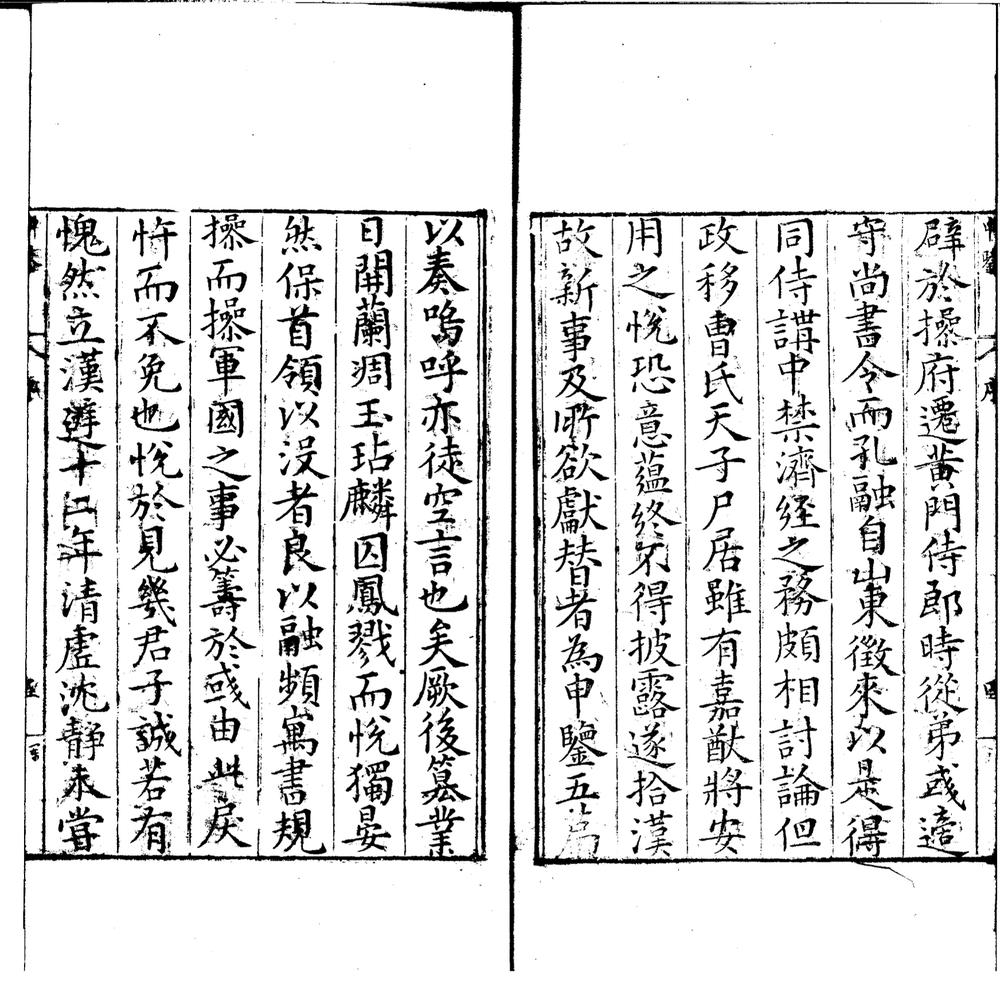 辟於操府遷黃門侍郎時從弟彧適
守尚書令而孔融自山東徵來以是得
同侍講中禁濟經之務頗相討論但
政移曹氏天子尸居雖有嘉猷將安
用之悅恐意蘊終不得披露遂拾漢
故新事及所欲獻替者為申鑒五篇
以奏嗚呼亦徒空言也矣厥後篡業
日開蘭凋玉玷麟囚鳳戮而悅獨晏
然保首領以沒者良以融頻寓書規
操而操軍國之事必籌於彧由此戾
忤而不免也悅於見幾君子誠若有
愧然立漢避十二年清虛沈靜未嘗